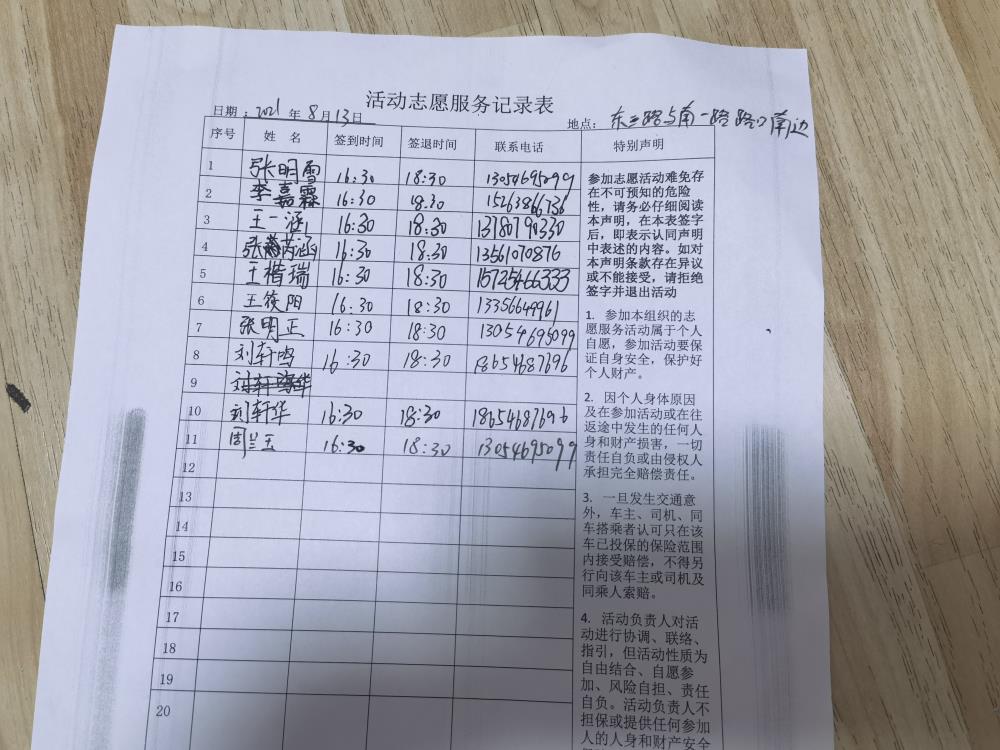 活动志愿服务记录表
日期：2021 年 8 月 13 日 地点：东三路与南一路路口南边
序号 姓 名 签到时间 签退时间 联系电话 特别声明
1 张明雪 16:30 18:30 13054695099
2 李嘉霖 16:30 18:30 15263866736
3 王一涵 16:30 18:30 13780790330
4 张芮涵 16:30 18:30 13561070876
5 王楷瑞 16:30 18:30 15725466333
6 王筱阳 16:30 18:30 13356644961
7 张明正 16:30 18:30 13054695099
8 刘轩鸣 16:30 18:30 18654687696
9
10 刘轩华 16:30 18:30 18654687696
11 周兰玉 16:30 18:30 13054695099
12
13
14
15
16
17
18
19
20
参加志愿活动难免存
在不可预知的危险
性，请务必仔细阅读
本声明，在本表签字
后，即表示认同声明
中表述的内容。如对
本声明条款存在异议
或不能接受，请拒绝
签字并退出活动
1. 参加本组织的志
愿服务活动属于个人
自愿，参加活动要保
证自身安全，保护好
个人财产。
2. 因个人身体原因
及在参加活动或在往
返途中发生的任何人
身和财产损害，一切
责任自负或由侵权人
承担完全赔偿责任。
3. 一旦发生交通意
外，车主、司机、同
车搭乘者认可只在该
车已投保的保险范围
内接受赔偿，不得另
行向该车主或司机及
同乘人索赔。
4. 活动负责人对活
动进行协调、联络、
指引，但活动性质为
自由结合、自愿参
加、风险自担、责任
自负。活动负责人不
担保或提供任何参加
人的人身和财产安全